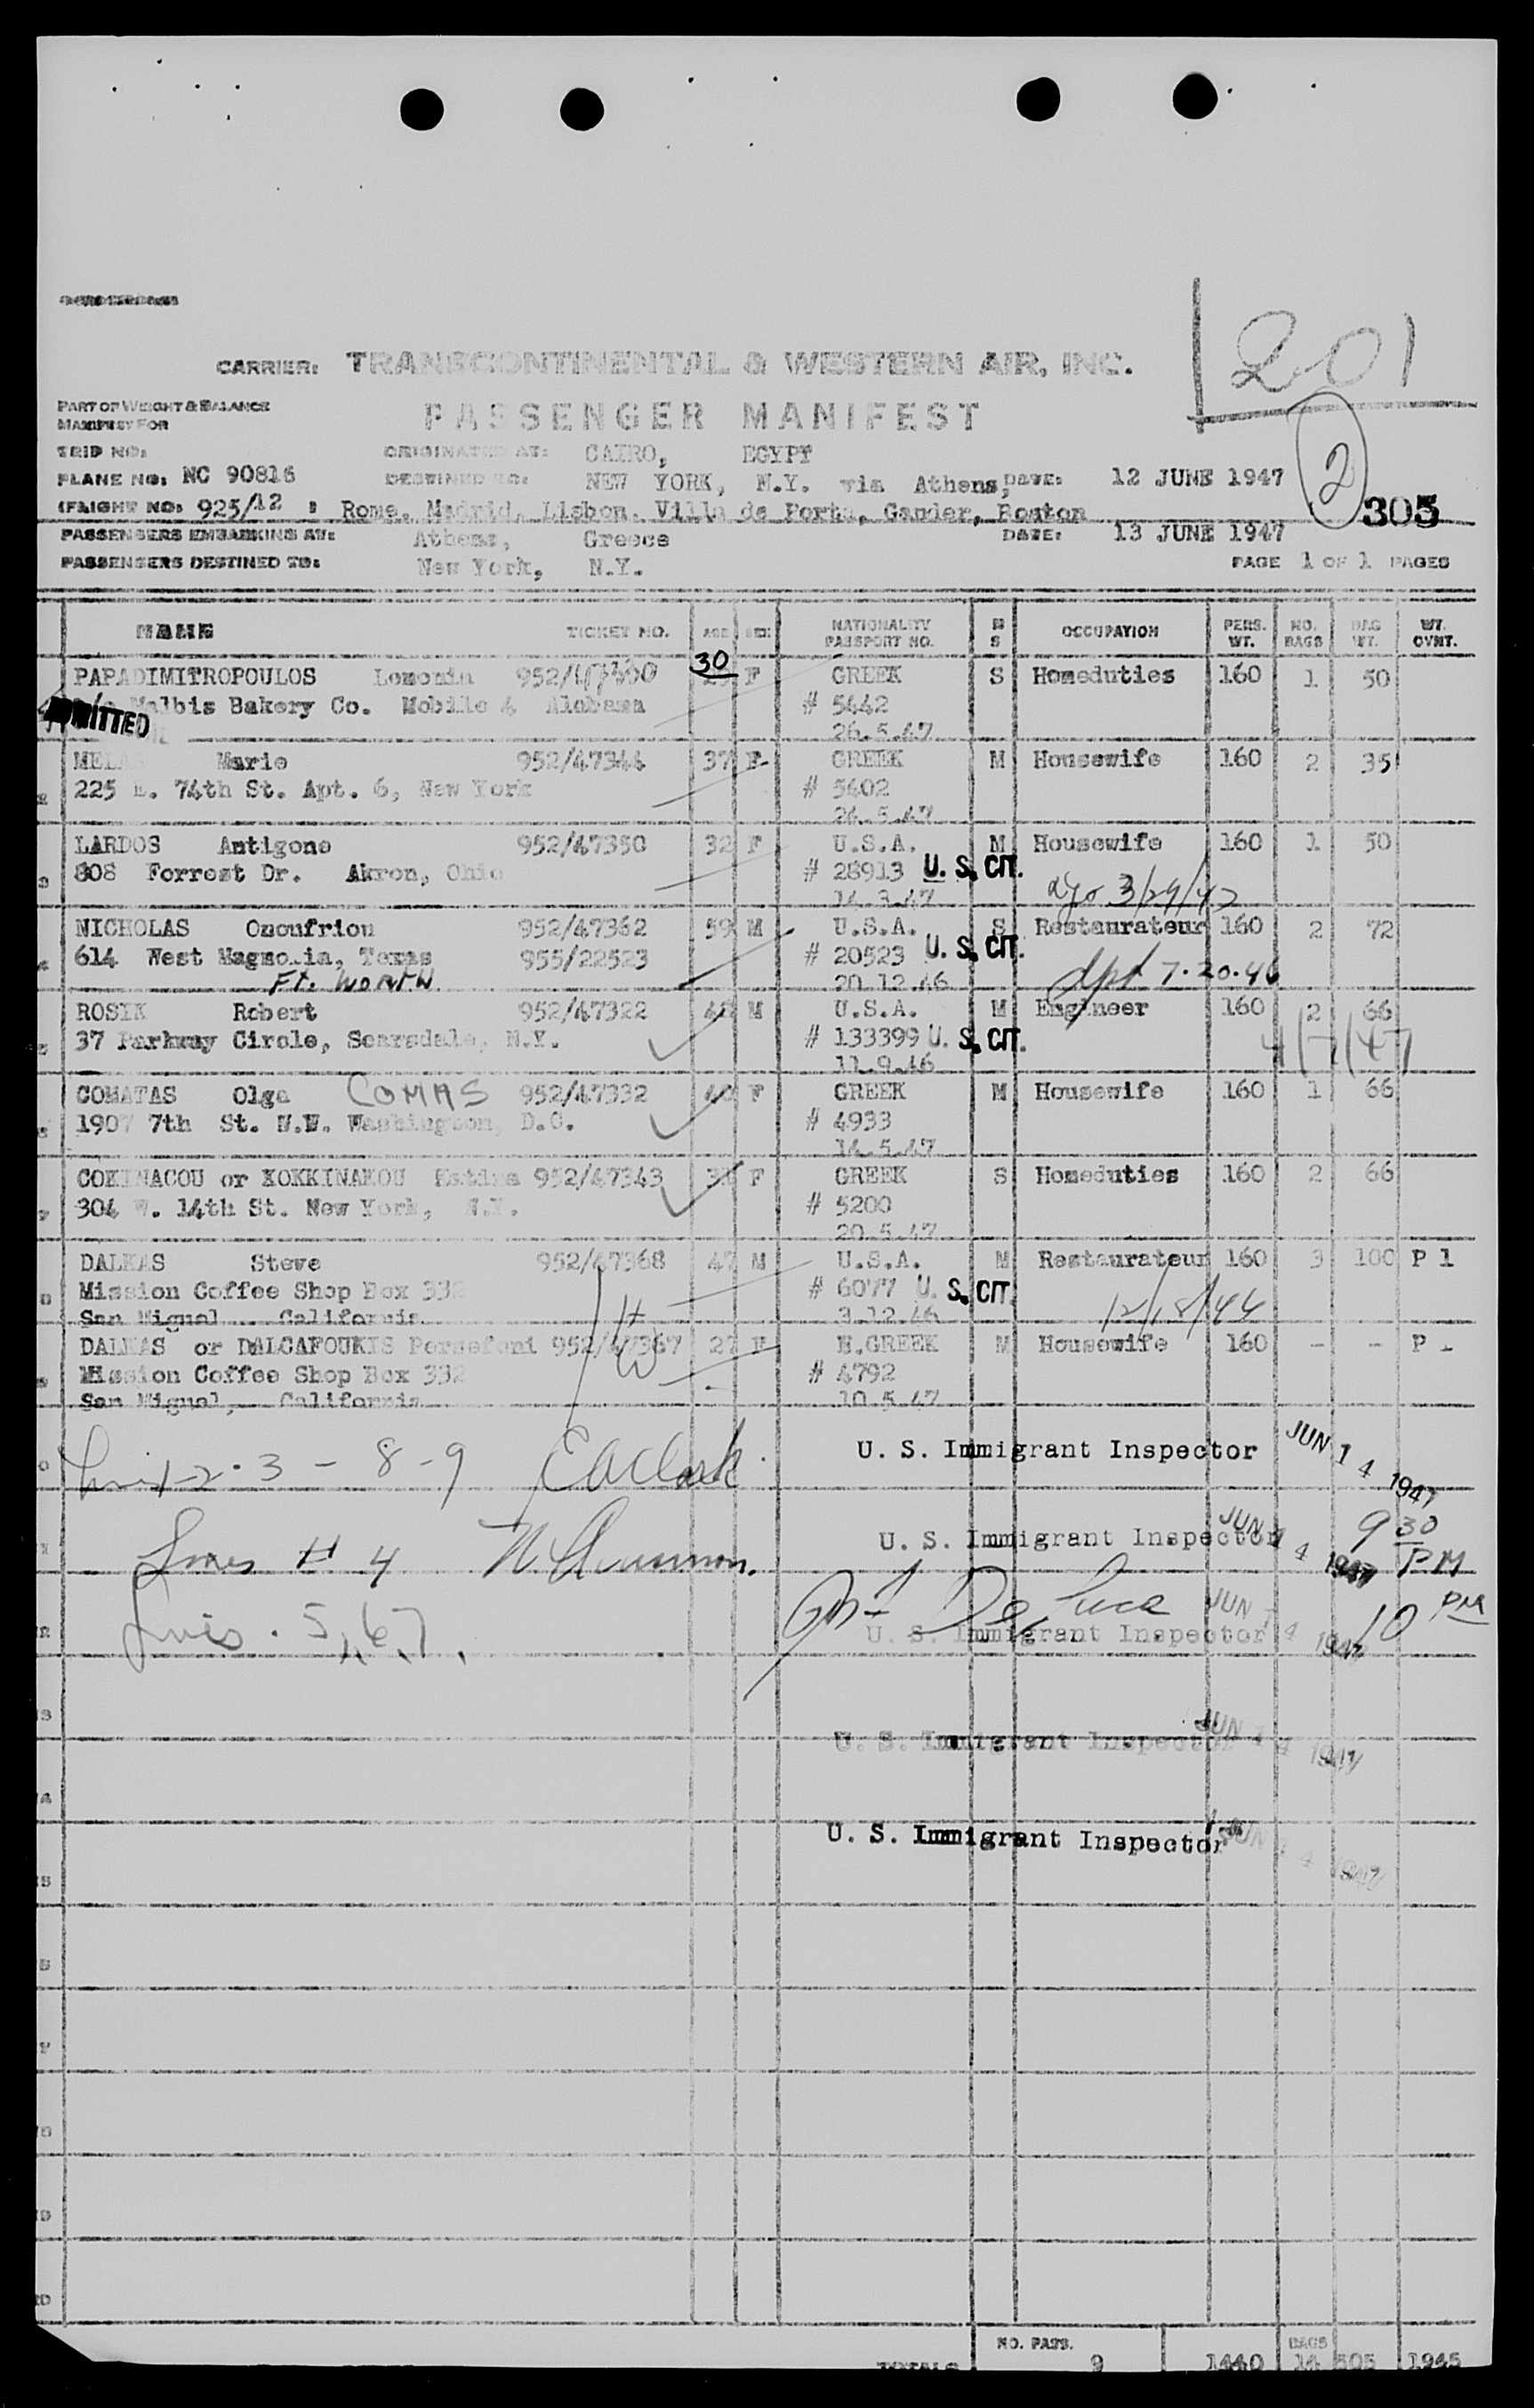 CARRIER: TRANSCONTINENTAL & WESTERN AIR, INC.
201
PART OF WEIGHT & BALANCE
MANIFEST FOR
PASSENGER MANIFEST
TRIP NO: ORIGINATED AT: CAIRO, EGYPT
PLANE NO: NC 90816 DESTINED TO: NEW YORK, N.Y. via Athens, DATE: 12 JUNE 1947
2
(FLIGHT NO: 925/12 : Rome, Madrid, Lisbon, Villa de Porto, Gander, Boston
305
PASSENGERS EMBARKING AT: Athens, Greece DATE: 13 JUNE 1947
PASSENGERS DESTINED TO: New York, N.Y. PAGE 1 OF 1 PAGES
NAME TICKET NO. AGE SEX NATIONALITY PASSPORT NO. M S OCCUPATION PERS. WT. NO. BAGS BAG WT. WT. OVNT.
30
PAPADIMITROPOULOS 952/47300 F GREEK S Homeduties 160 1 50
Malbis Bakery Co. Mobile 4 Alabama # 5442
ADMITTED 26.5.47
Marie 952/47344 37 F GREEK M Housewife 160 2 35
225 E. 74th St. Apt. 6, New York # 5402
24.5.47
LARDOS Antigone 952/47350 32 F U.S.A. M Housewife 160 1 50
808 Forrest Dr. Akron, Ohio # 28913 U. S. CIT.
14.3.47 3/29/47
NICHOLAS Onoufriou 952/47362 59 M U.S.A. S Restaurateur 160 2 72
614 West Magnolia, Texas 955/22523 # 20523 U. S. CIT.
Ft. WORTH 20.12.46 dpt 7.20.46
ROSIK Robert 952/47322 48 M U.S.A. M Engineer 160 2 66
37 Parkway Circle, Scarsdale, N.Y. # 133399 U. S. CIT. 4/7/47
11.9.46
COMATAS Olga COMAS 952/47332 40 F GREEK M Housewife 160 1 66
1907 7th St. N.W. Washington, D.C. # 4933
14.5.47
COKINACOU or KOKKINAKOU Katina 952/47343 F GREEK S Homeduties 160 2 66
304 W. 14th St. New York, N.Y. # 5200
20.5.47
DALKAS Steve 952/47368 47 M U.S.A. M Restaurateur 160 3 100 P 1
Mission Coffee Shop Box 332 # 6077 U. S. CIT.
San Miguel California 3.12.46 12/18/46
DALKAS or DALCAFOUKIS Persefoni 952/47367 27 F GREEK M Housewife 160 - - P -
H
W
Mission Coffee Shop Box 332 # 4792
San Miguel, California 10.5.47
U. S. Immigrant Inspector JUN 14 1947
1-2-3-8-9 E A Clark
U. S. Immigrant Inspector JUN 14 1947 9 30 PM
Lines # 4
U. S. Immigrant Inspector JUN 14 1947 10 PM
Lines. 5, 6, 7, De Luca
U. S. Immigrant Inspector JUN 14 1947
U. S. Immigrant Inspector JUN 14 1947
NO. PASS. BAGS
TOTALS 9 1440 14 505 1945